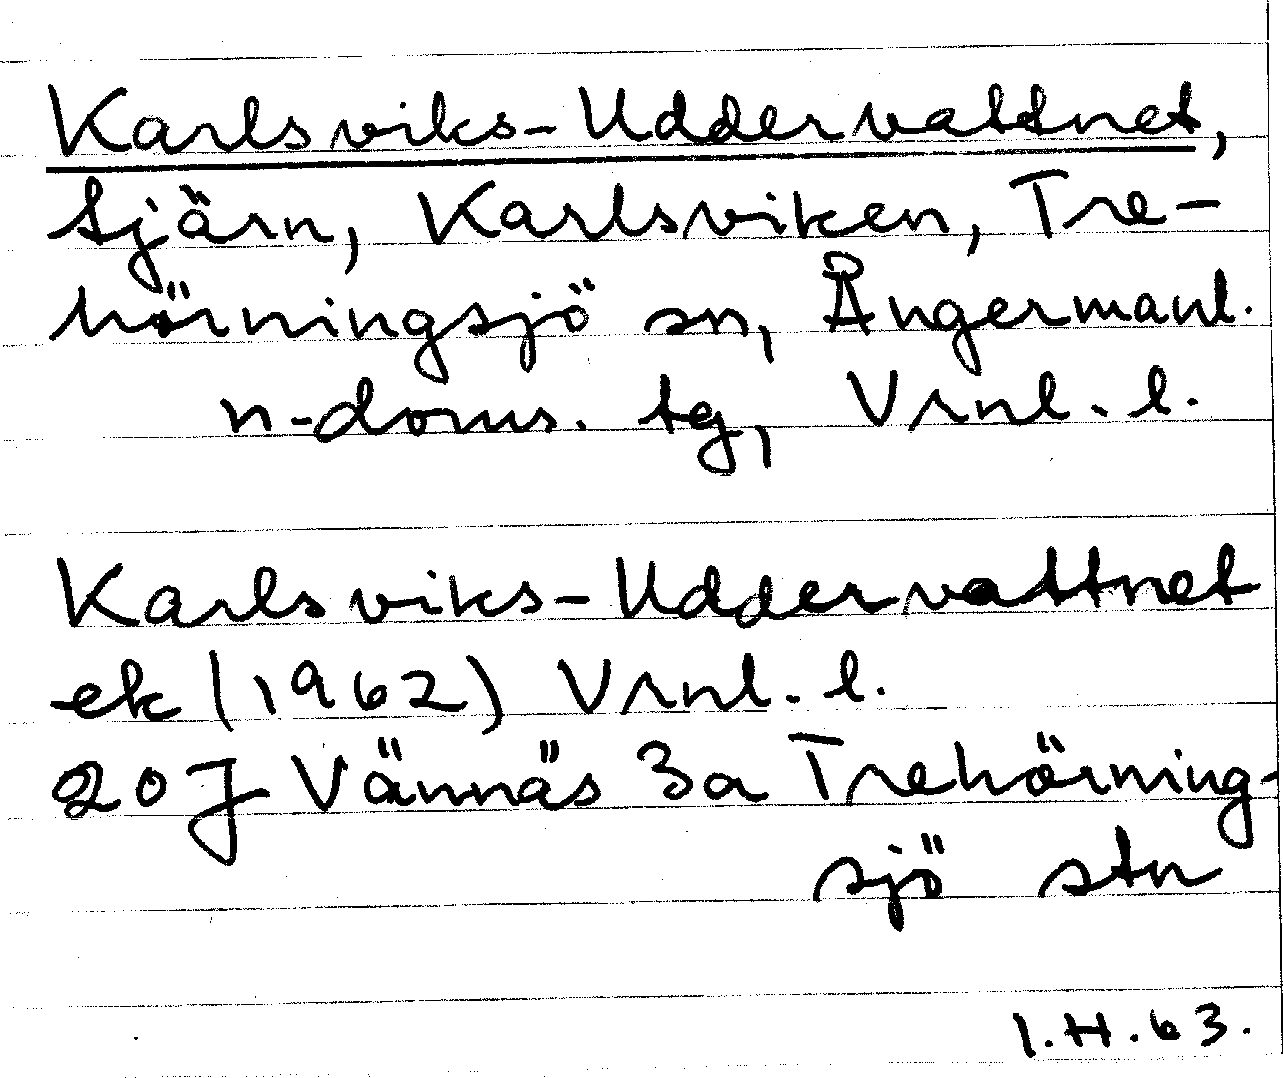 Karlsviks-Uddervattnet,
tjärn, Karlsviken, Tre-
hörningsjö sn, Ångermanl.
n-doms. tg, Vrnl. l.
Karlsviks-Uddervattnet
ek (1962) Vrnl. l.
20 J Vännäs 3a Trehörning-
sjö stn
I.H.63.